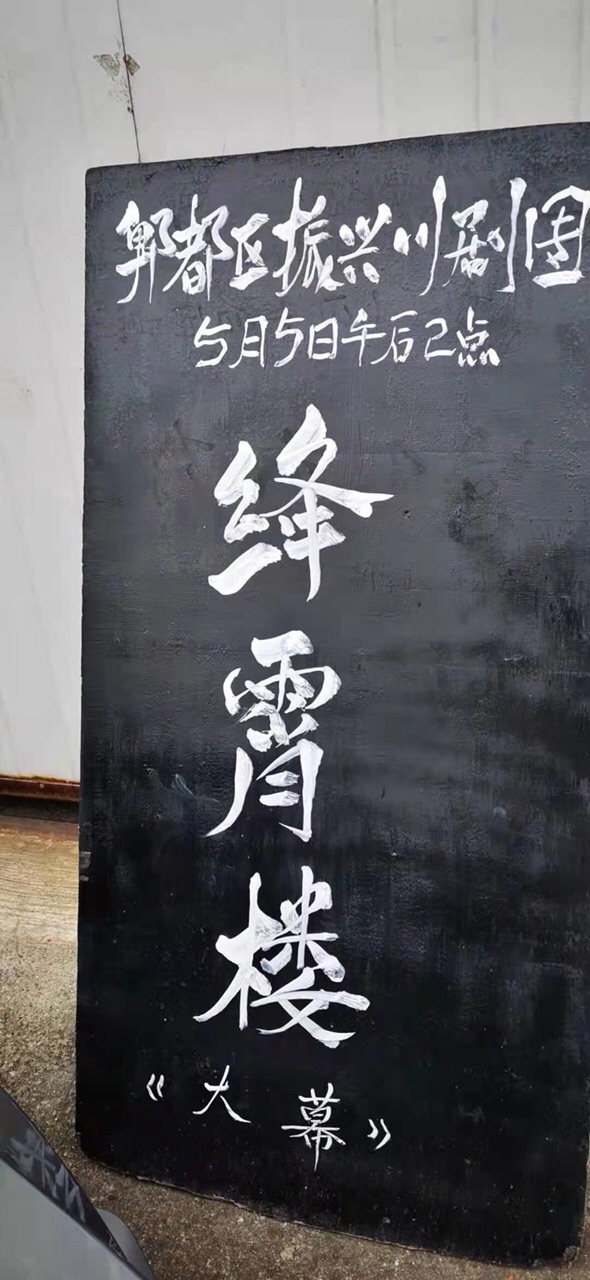 郫都区振兴川剧团
5月5日午后2点
绛霄楼
《大幕》